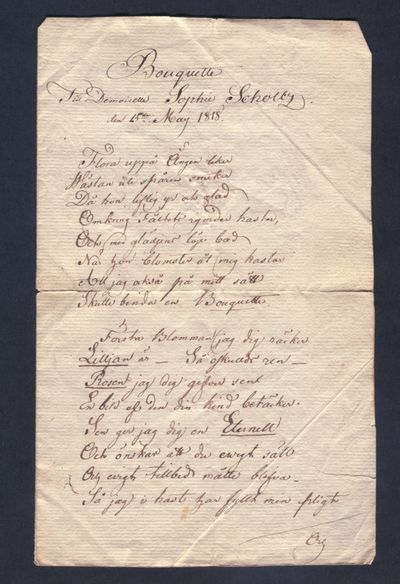 Bouquette
Till Demoiselle Sophie Scholtz.
den 15de May 1818.
Flora uppå Ängen leker
Wästan ute spåren smeker
Då hon liflig yr och glad
Omkring Fältets rynder hastar,
Och med glädjens löje bad
När hon blomster åt mig kastar
Att jag också på mitt sätt
Skulle binda en Bouquette
Första Blomman jag dig räcker
Lilljan är — Så oskulds ren —
Rosen jag dig gifver sen
En bild af den din kind betäcker.
Sen ger jag dig en Eternell
Och önskar att du ewigt säll
Och ewigt tillbed måtte blifva —
Så jag i hast har fyllt min pligt